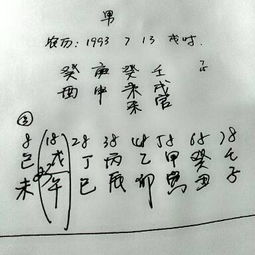 男
农历: 1993 7 13 戌时.
癸 庚 癸 壬
酉 申 未 戌
8 18 28 38 48 58 68 78
己 戊 丁 丙 乙 甲 癸 壬
未 午 巳 辰 卯 寅 丑 子